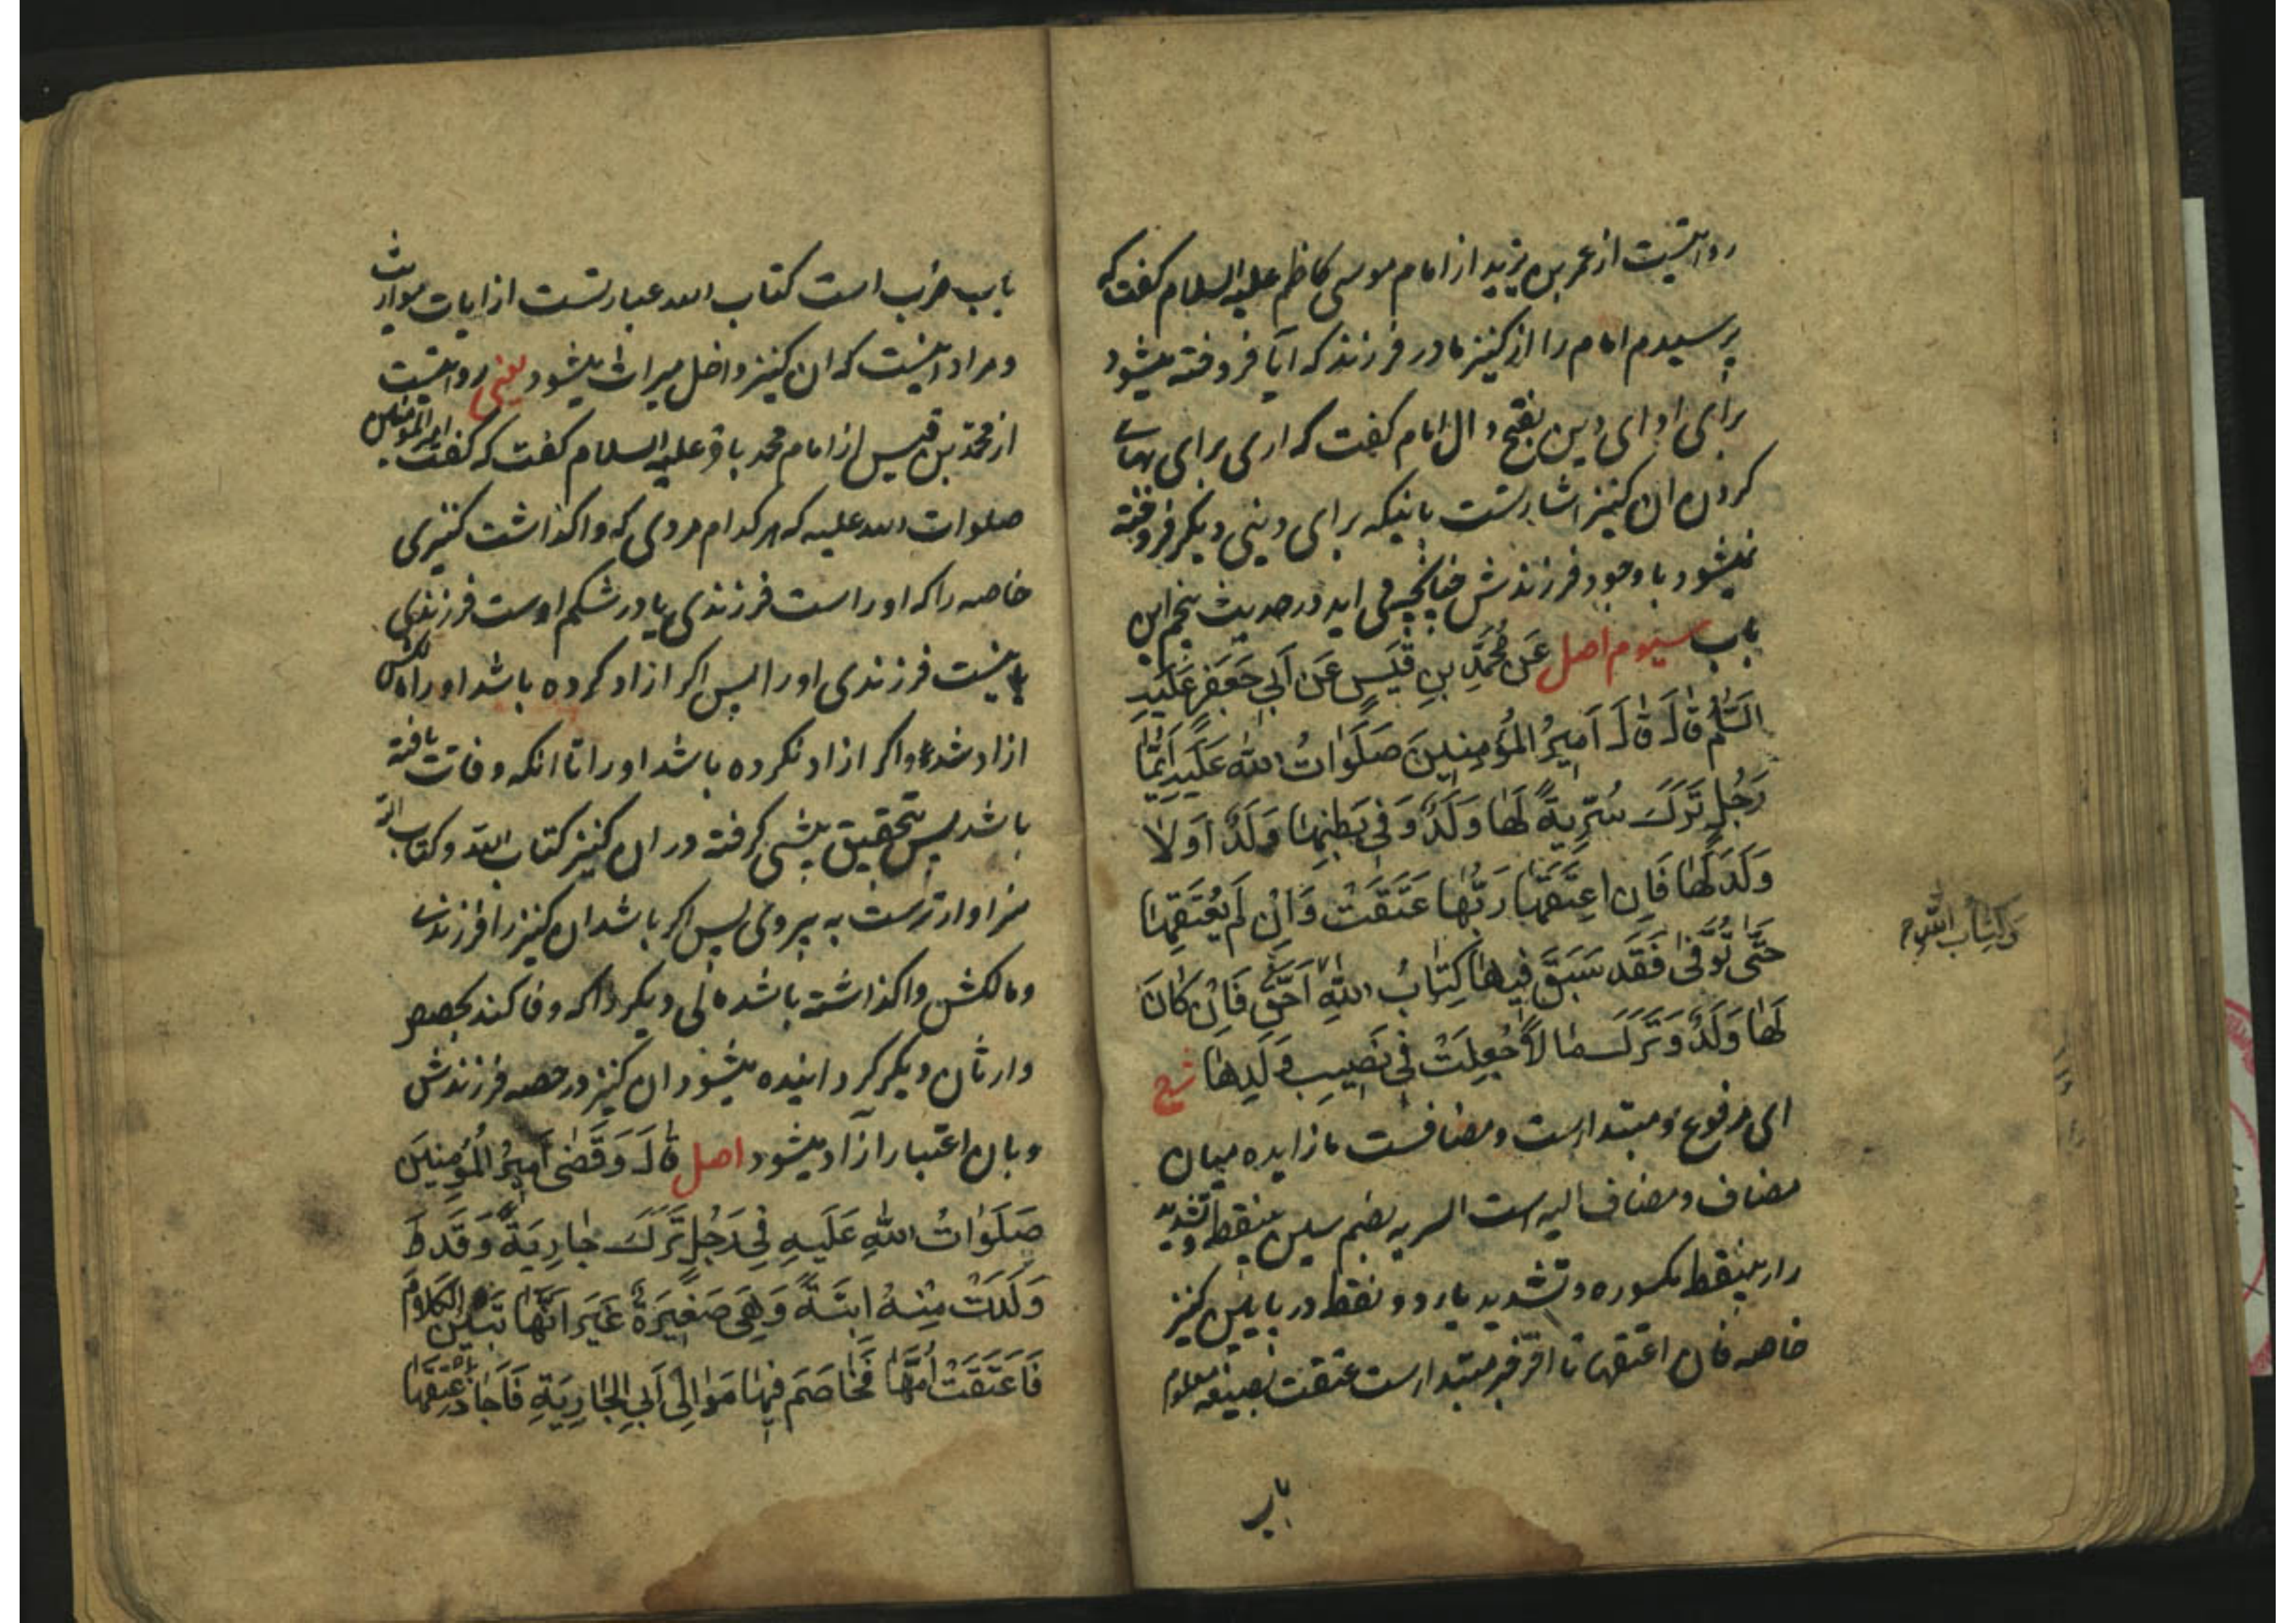 روایتست از عمر بن یزید از امام موسی کاظم علیه السلام گفت که
پرسیدم امام را از کنیز مادر فرزند که ایا فروخته میشود
برای ادای دین بفتح دال امام گفت که اری برای بهای
کردن ان کنیز اشارتست باینکه برای دینی دیگر فروخته
نمیشود با وجود فرزندش چنانچه می اید در حدیث پنجم این
باب سیوم اصل عَن مُحَمَّدِ بنِ قَیسٍ عَن اَبی جَعفَرٍ عَلَیهِ
السَّلٰمُ قٰالَ قٰالَ اَمیرُ المُؤمِنینَ صَلَوٰاتُ اللهِ عَلَیهِ اَیُّمٰا
رَجُلٍ تَرَکَ سُرِّیَةً لَهٰا وَلَدٌ وَفی بَطنِهٰا وَلَدٌ اَو لٰا
وَلَدَ لَهٰا فَاِن اَعتَقَهٰا رَبُّهٰا عَتَقَت وَاِن لَم یُعتِقهٰا
حَتّٰی تُوُفِّیَ فَقَد سَبَقَ فیهٰا کِتٰابُ اللهِ اَحَقُّ فَاِن کٰانَ
وَکِتٰابُ اللهِ
لَهٰا وَلَدٌ وَتَرَکَ مٰالاً جُعِلَت فی نَصیبِ وَلَدِهٰا شرح
ای مرفوع و مبتداست و مضافست ما زایده میان
مضاف و مضاف الیه است السریه بضم سین بینقطه و تشدید
راء بینقطه مکسوره و تشدید یاء دو نقطه در پایین کنیز
خاصه فان اعتقها تا اخر خبر مبتداست عتقت بصیغه معلوم
باب
باب ضرب است کتاب الله عبارتست از ایات مواریث
و مراد اینست که ان کنیز داخل میراث میشود یعنی روایتست
از محمد بن قیس از امام محمد باقر علیه السلام گفت که گفت امیر المؤمنین
صلوات الله علیه که هر کدام مردی که واگذاشت کنیزی
خاصه را که او راست فرزندی یا در شکم اوست فرزندی
یا نیست فرزندی او را پس اگر ازاد کرده باشد او را مالکش
ازاد شده و اگر ازاد نکرده باشد او را تا انکه وفات یافته
باشد پس بتحقیق پیشی گرفته در ان کنیز کتاب الله و کتاب الله
سزاوارترست به پیروی پس اگر باشد ان کنیز را فرزندی
و مالکش واگذاشته باشد مالی دیگر را که وفا کند بحصص
وارثان دیگر گردانیده میشود ان کنیز در حصه فرزندش
و بان اعتبار آزاد میشود اصل قٰالَ وَقَضٰی اَمیرُ المُؤمِنینَ
صَلَوٰاتُ اللهِ عَلَیهِ فی رَجُلٍ تَرَکَ جٰارِیَةً وَقَد
وَلَدَت مِنهُ ابنَةً وَهِیَ صَغیرَةٌ غَیرَ اَنَّهٰا تُبینُ الکَلٰامَ
فَاَعتَقَت اُمَّهٰا فَخٰاصَمَ فیهٰا مَوٰالی اَبِی الجٰارِیَةِ فَاَجٰازَ عِتقَهٰا